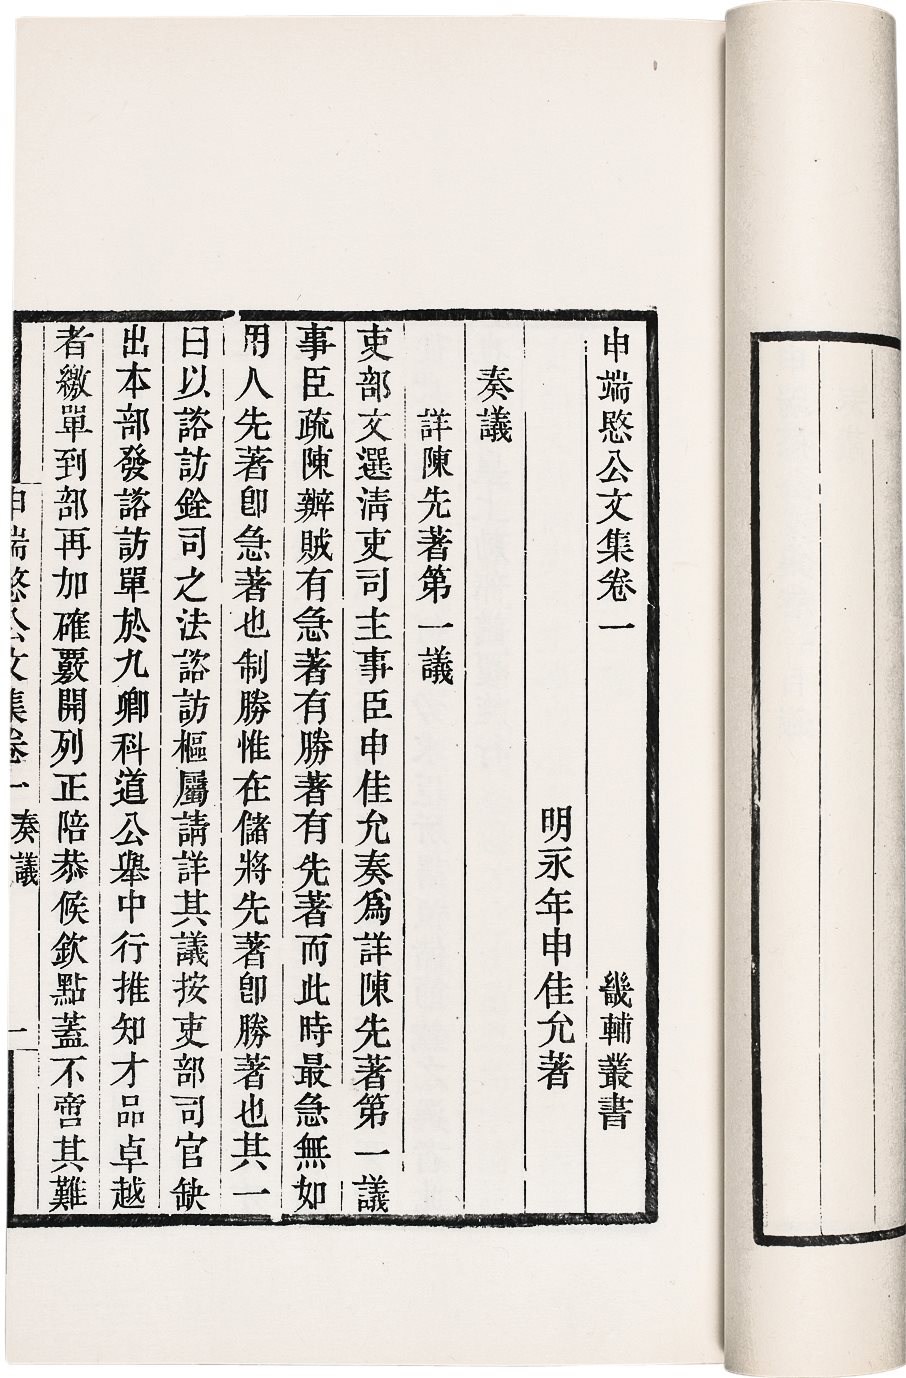 申端愍公文集卷一 畿輔叢書
明永年申佳允著
奏議
詳陳先著第一議
吏部文選淸吏司主事臣申佳允奏爲詳陳先著第一議
事臣疏陳辦賊有急著有勝著有先著而此時最急無如
用人先著卽急著也制勝惟在儲將先著卽勝著也其一
曰以諮訪銓司之法諮訪樞屬請詳其議按吏部司官缺
出本部發諮訪單於九卿科道公舉中行推知才品卓越
者繳單到部再加確覈開列正陪恭候欽點蓋不啻其難
申端愍公文集卷一 奏議 一